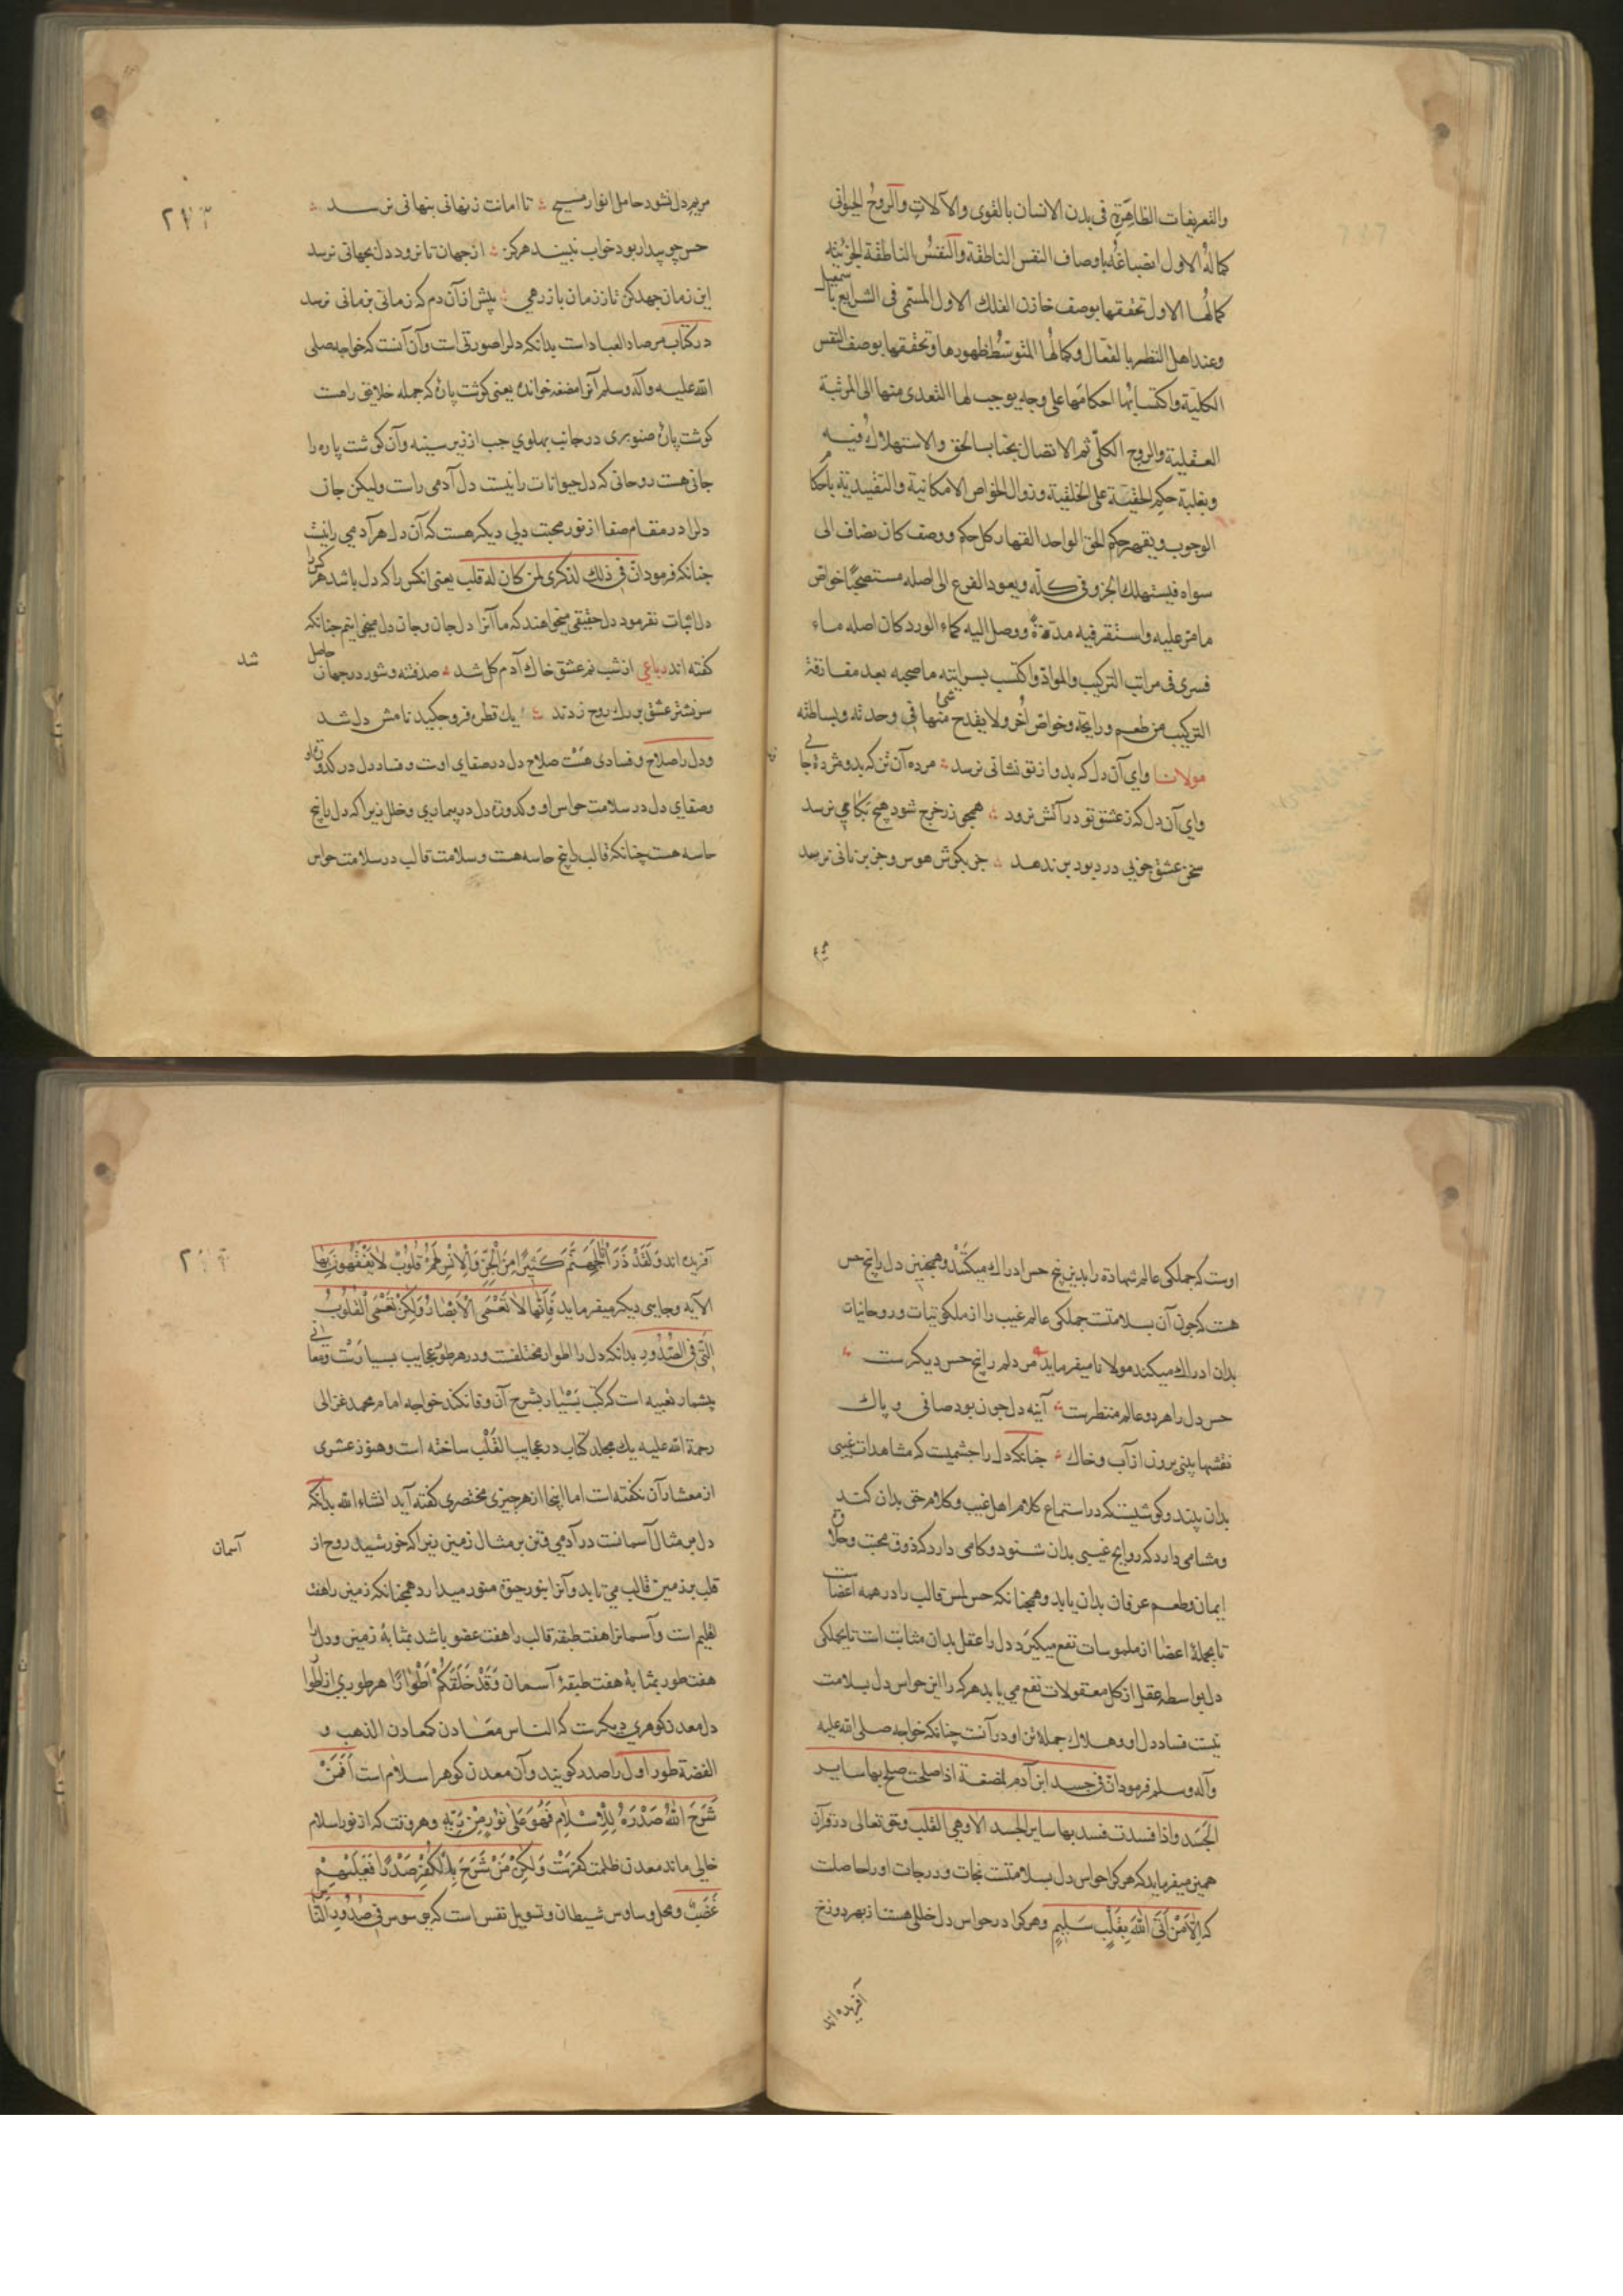 والتعريفات الظاهرة في بدن الانسان بالقوى والآلات والروح الحيواني
كماله الاول انصباغه باوصاف النفس الناطقة والنفس الناطقة الجزئية
كمالها الاول تحققها بوصف خازن الفلك الاول المسمى في الشرايع باسمعيل
وعند اهل النظر بالفعّال وكمالها المتوسط ظهورها وتحققها بوصف النفس
الكلية واكتسابها احكامها على وجه يوجب لها التعدى منها الى المرتبة
العقلية والروح الكلّي ثم الاتصال بجناب الحق والاستهلاك فيه
وبغلبة حكم الحقية على الخلقية وزوال الخواص الامكانية والتقييدية باحكام
الوجوب ويقهر حكم الحق الواحد القهار كل حكم ووصف كان يضاف الى
سواه فيستهلك الجزو في كلّه ويعود الفرع الى اصله مستصحبًا خواص
ما مرّ عليه واستقر فيه مدّة ووصل اليه كماء الورد كان اصله ماء
فسرى في مراتب التركيب والمواد واكتسب بسرايته ما صحبه بعد مفارقة
التركيب من طعم ورايحة وخواص أخر ولا يقدح شئ منها في وحدته وبساطته
مولانا واي آن دل كه بدو از تو نشانى نرسد مرده آن تن كه بدو مژدهٔ جانى
واي آن دل كه ز عشق تو در آتش نرود همچو زر خرج شود هيچ بكامي نرسد
سخن عشق چو بي درد بود بر ندهد جز بگوش هوس و جز بزبانى نرسد
مريم دل نشود حامل انوار مسيح تا امانت ز نهانى بنهانى نرسد
حس چو بيدار بود خواب نبيند هرگز از جهان تا نرود دل بجهانى نرسد
اين زمان جهد كن تا ز زمان باز رهي پيش از آن دم كه زمانى بزمانى نرسد
در كتاب مرصاد العباد است بدانكه دلرا صورتى است وآن آنست كه خواجه صلى
الله عليه وآله وسلم آنرا مضغه خوانده يعنى گوشت پاره كه جمله خلايق راهست
گوشت پاره صنوبرى در جانب پهلوي چب از زير سينه وآن گوشت پاره را
جانى هست روحانى كه دل حيوانات را نيست دل آدمى راست وليكن جان
دلرا در مقام صفا از نور محبت دلي ديگر هست كه آن دل هر آدمى را نيست
چنانكه فرمود ان في ذلك لذكرى لمن كان له قلب يعنى انكس را كه دل باشد هر كس را
دل اثبات نفرمود دل حقيقى ميخواهند كه ما آنرا دل جان وجان دل ميخوانيم چنانكه
گفته اند رباعي از شبنم عشق خاك آدم گل شد صد فتنه وشور در جهان حاصل
شد
سر نشتر عشق بر رگ روح زدند يك قطره فرو چكيد نامش دل شد
ودل را صلاح وفسادى هست صلاح دل در صفاي اوست وفساد دل در كدورت او
وصفاي دل در سلامت حواس او وكدورت دل در بيمارى وخلل زيرا كه دل را پنج
حاسه هست چنانكه قالب را پنج حاسه هست وسلامت قالب در سلامت حواس
اوست كه جملگى عالم شهادة را بدين پنج حس ادراك ميكند وهمچنين دل را پنج حس
هست كه چون آن بسلامتست جملگى عالم غيب را از ملكوتيات وروحانيات
بدان ادراك ميكند مولانا ميفرمايد مر دلم را پنج حس ديگرست
حس دل را هر دو عالم منظرست آينه دل چون بود صافى و پاك
نقشها بينى برون از آب وخاك چنانكه دل را چشميست كه مشاهدات غيبى
بدان بيند وگوشيست كه در استماع كلام اهل غيب وكلام حق بدان كند
ومشامى دارد كه روايح غيبى بدان شنود وكامى دارد كه ذوق محبت وحلاوت
ايمان وطعم عرفان بدان يابد وهمچنانكه حس لمس قالب را در همه اعضاست
تا بجملهٔ اعضا از ملموسات نفع ميگيرد دل را عقل بدان مثابت است تا بجملگى
دل بواسطه عقل از كل معقولات نفع مي يابد هر كه را اين حواس دل بسلامت
نيست فساد دل او وهلاك جملهٔ تن او در آنست چنانكه خواجه صلى الله عليه
وآله وسلم فرمود ان في جسد ابن آدم لمضغة اذا صلحت صلح بها ساير
الجسد واذا فسدت فسد بها ساير الجسد الا وهي القلب وحق تعالى در قرآن
همين ميفرمايد كه هر كرا حواس دل بسلامتست نجات ودرجات او را حاصلست
كه الا من اتى الله بقلب سليم وهر كرا در حواس دل خللى هست از بهر دوزخ
آفريده اند
آفريده اند ولقد ذرأنا لجهنم كثيرا من الجن والانس لهم قلوب لا يفقهون بها
الآيه وجايي ديگر ميفرمايد فانها لا تعمى الابصار ولكن تعمى القلوب
التي في الصدور بدانكه دل را اطوار مختلفست ودر هر طور عجايب بسيارست ومعانى
بيشمار تعبيه است كه كتب بسيار بشرح آن وفا نكند خواجه امام محمد غزالى
رحمة الله عليه يك مجلد كتاب در عجايب القلب ساخته است وهنوز عشرى
از معشار آن نگفته است اما اينجا از هر چيزى مختصرى گفته آيد انشاء الله بدانكه
دل بر مثال آسمانست در آدمي وتن بر مثال زمين زيرا كه خورشيد روح از
آسمان
قلب بر زمين قالب مي تابد وآنرا بنور حيوة منور ميدارد همچنانكه زمين را هفت
اقليم است وآسمانرا هفت طبقه قالب را هفت عضو باشد بمثابهٔ زمين ودل را
هفت طور بمثابهٔ هفت طبقهٔ آسمان وقد خلقكم اطوارًا هر طوري از اطوار
دل معدن گوهري ديگرست كه الناس معادن كمعادن الذهب و
الفضة طور اول را صدر گويند وآن معدن گوهر اسلام است افمن
شرح الله صدره للاسلام فهو على نور من ربه وهر وقت كه از نور اسلام
خالى ماند معدن ظلمت كفرست ولكن من شرح بالكفر صدرًا فعليهم
غضب ومحل وساوس شيطان وتسويل نفس است كه يوسوس في صدور الناس